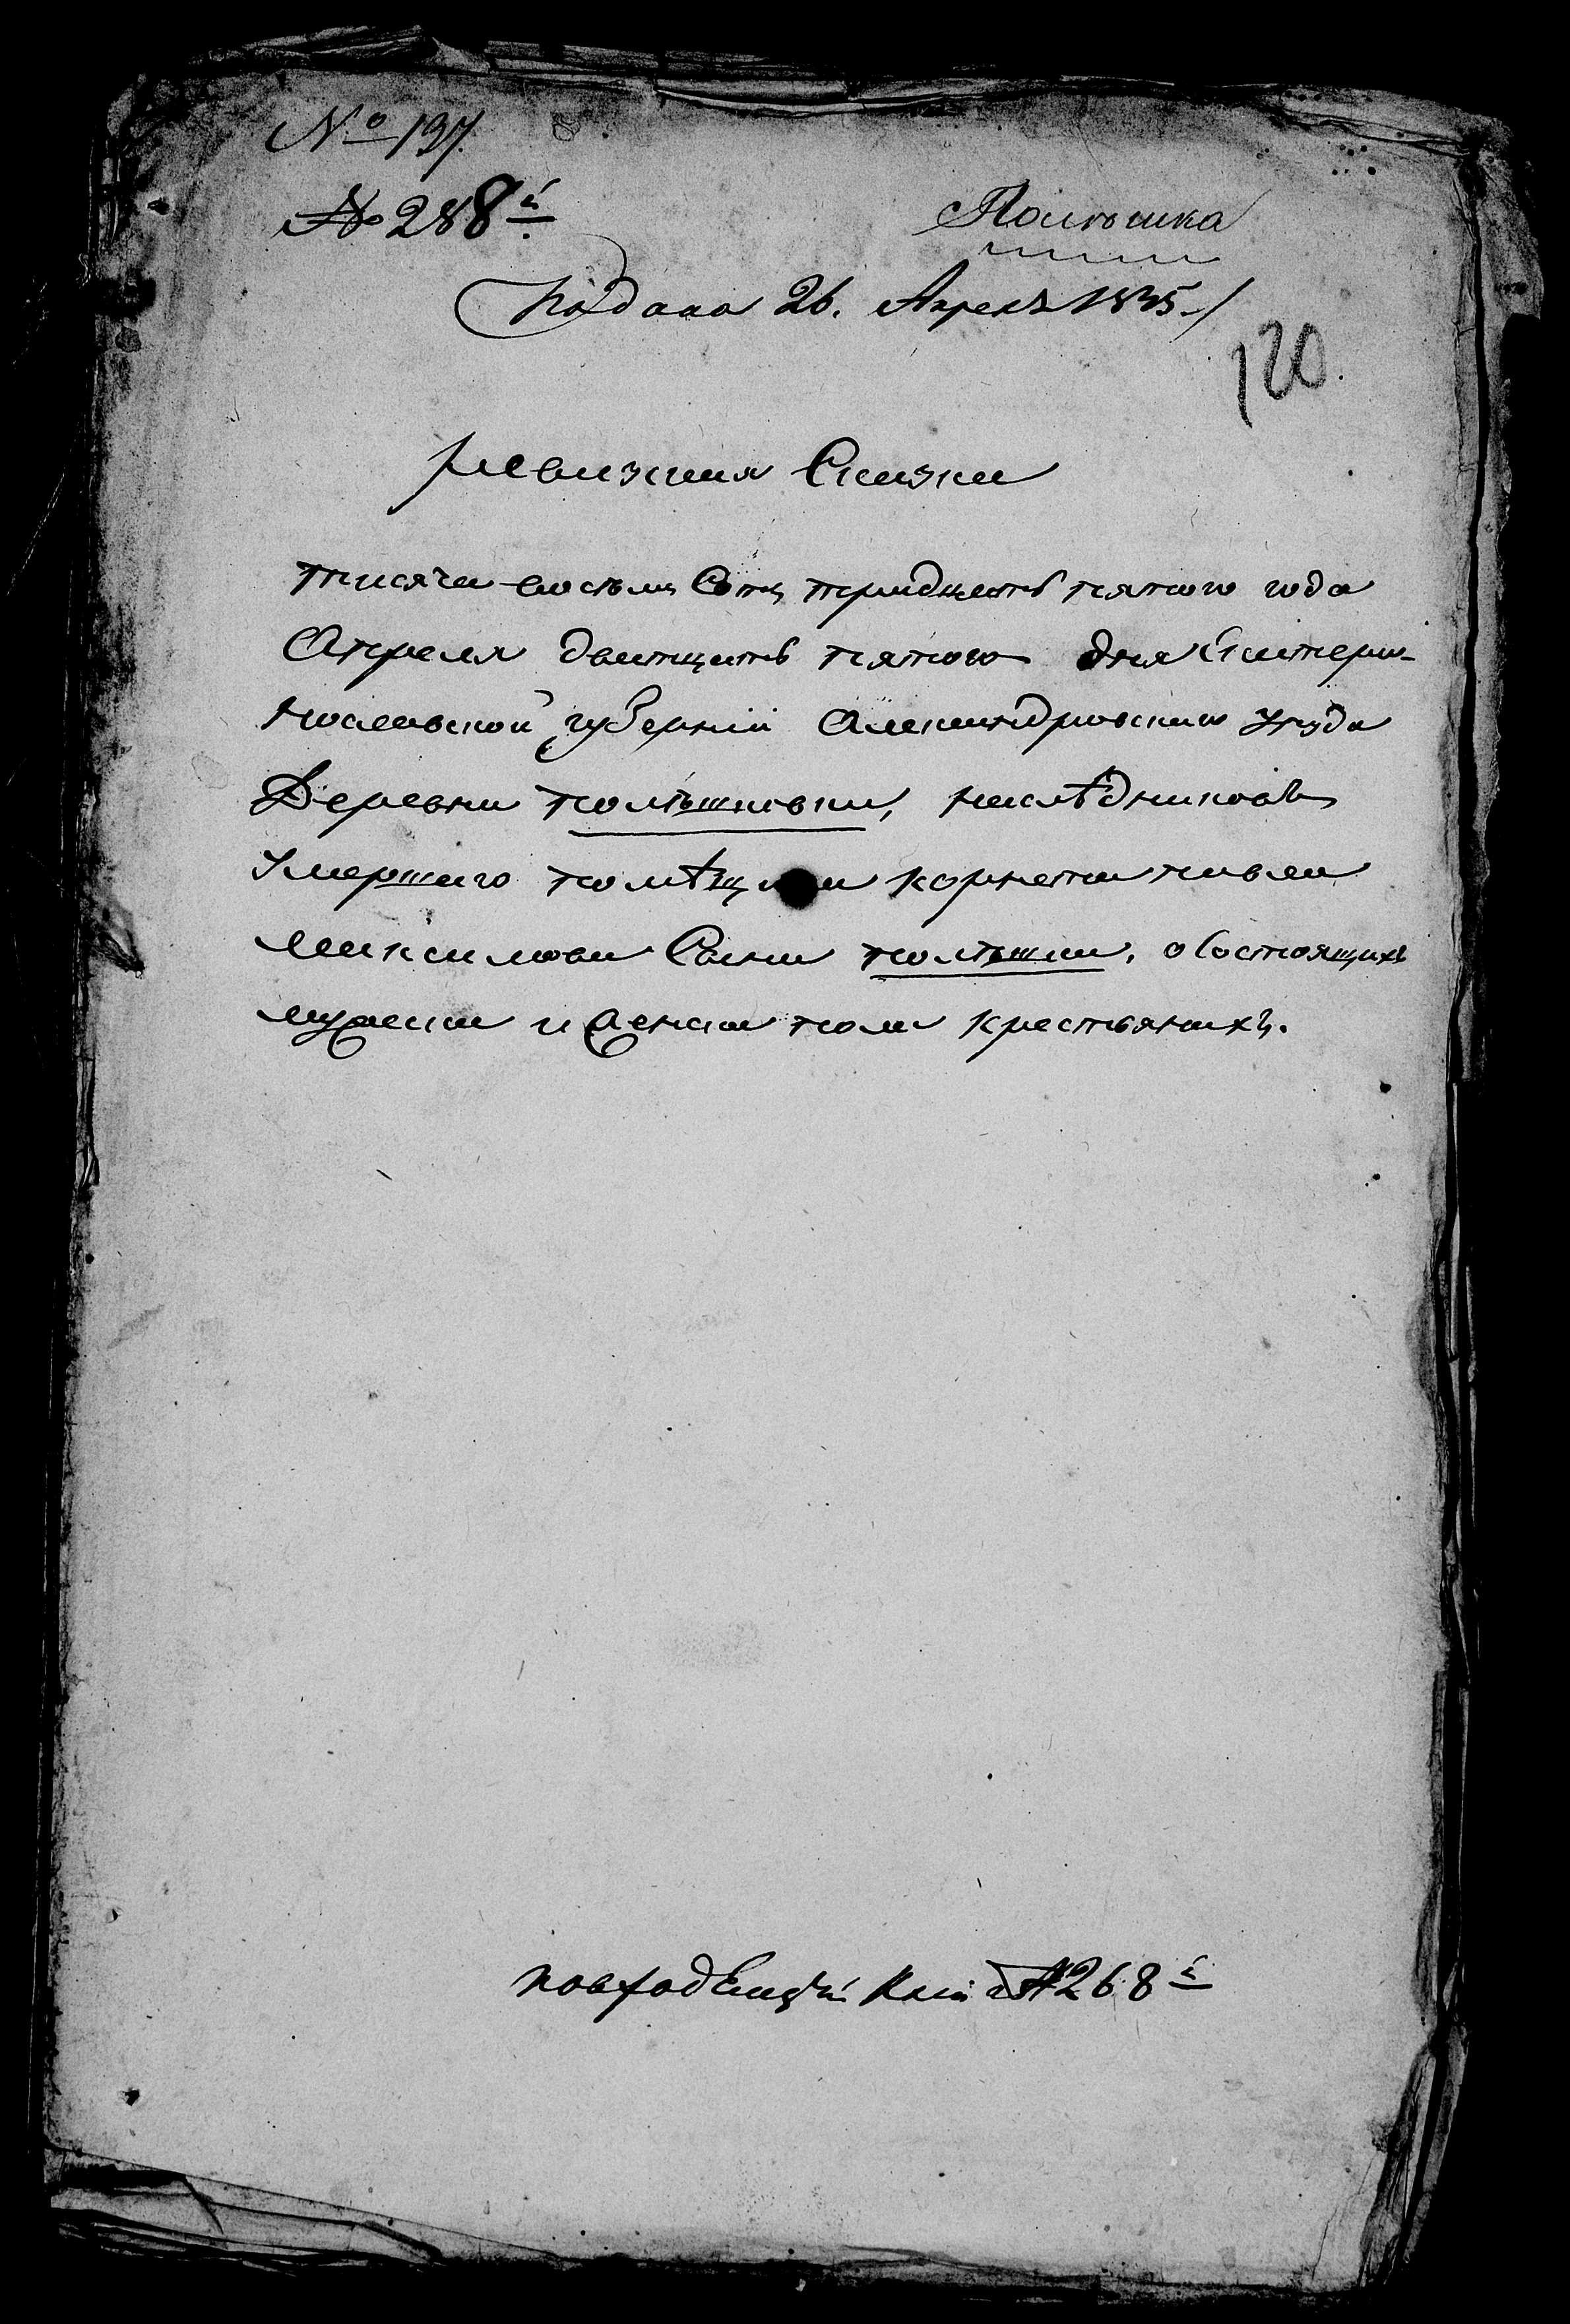 № 197.
№ 288й
Польшка
Подана 26. Апреля 1835./
120.
ревизская Сказка
тысяча восемь Сотъ тридцать пятого года
Апреля дватцать пятого дня Екатерин-
нославской губерніи Александровскаго уезда
Деревни польшновки, наслѣдниковъ
умершаго помѣщика корнета павла
максимова Сына польшки, о Состоящихъ
мужеска и женска пола крестьянахъ.
№ 268й